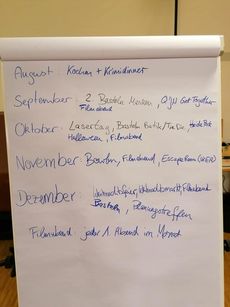 August Kochen + Krimidinner
September: 2. Basteln Messen, QJM Get Together
Filmabend
Oktober: Lasertag, Basteln Batik/TieDie, HeidePark
Halloween, Filmabend
November: Bowln, Filmabend, EscapeRoom
Dezember: Weihnachtsfeier, Weihnachtsmarkt, Filmabend
Basteln, Planungstreffen
Filmabend: jeder 1. Abend im Monat